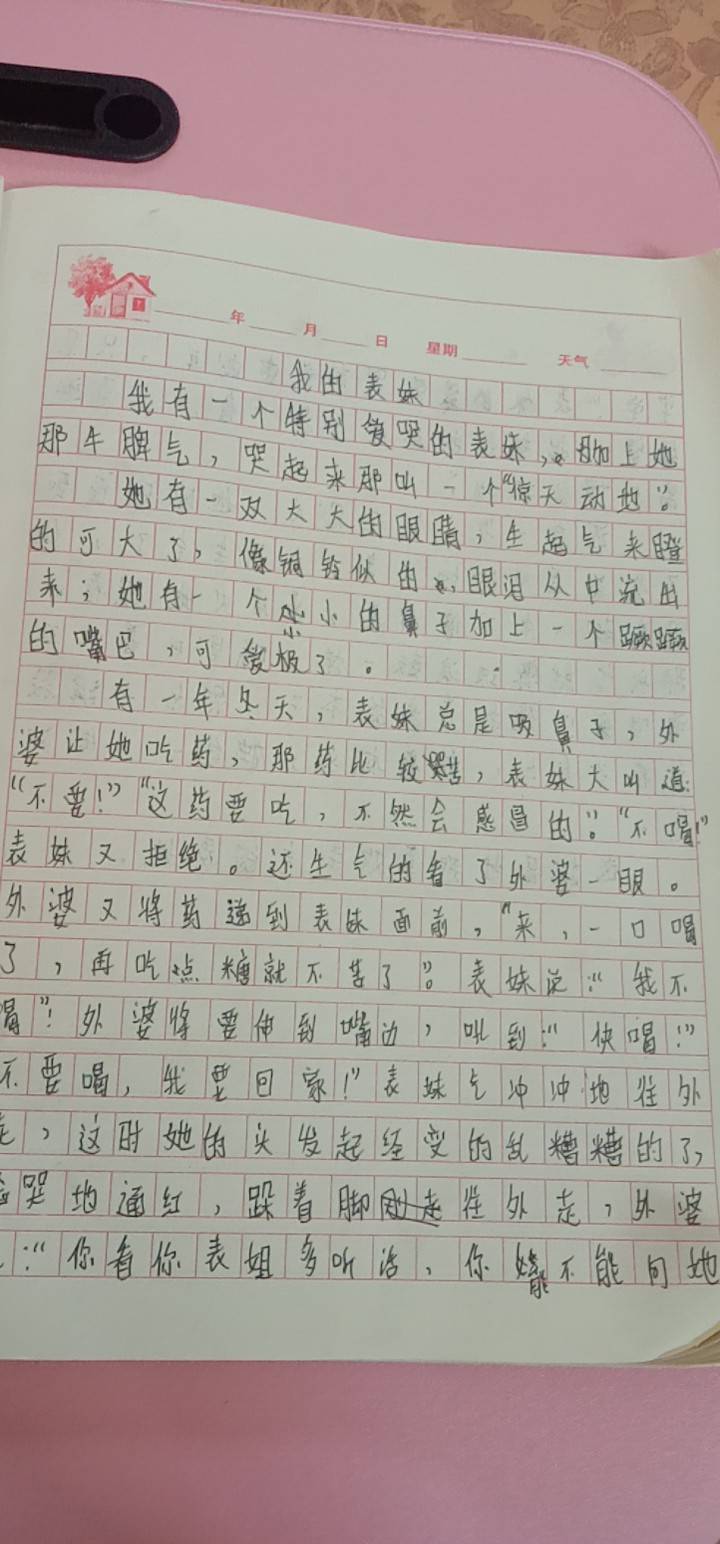 年 月 日 星期 天气
我的表妹
我有一个特别爱哭的表妹,加上她
那牛脾气,哭起来那叫一个“惊天动地”。
她有一双大大的眼睛,生起气来瞪
的可大了,像铜铃似的,眼泪从中流出
来;她有一个小小的鼻子加上一个蹶蹶
的嘴巴,可爱极了。
有一年冬天,表妹总是吸鼻子,外
婆让她吃药,那药比较苦,表妹大叫道:
“不要!”“这药要吃,不然会感冒的”。“不喝!”
表妹又拒绝。还生气的看了外婆一眼。
外婆又将药递到表妹面前,“来,一口喝
了,再吃点糖就不苦了”。表妹说:“我不
喝”!外婆将要伸到嘴边,吼到:“快喝!”
不要喝,我要回家!”表妹气冲冲地往外
走,这时她的头发起经变的乱糟糟的了,
哭地通红,跺着脚往外走,外婆
:“你看你表姐多听话,你能不能向她